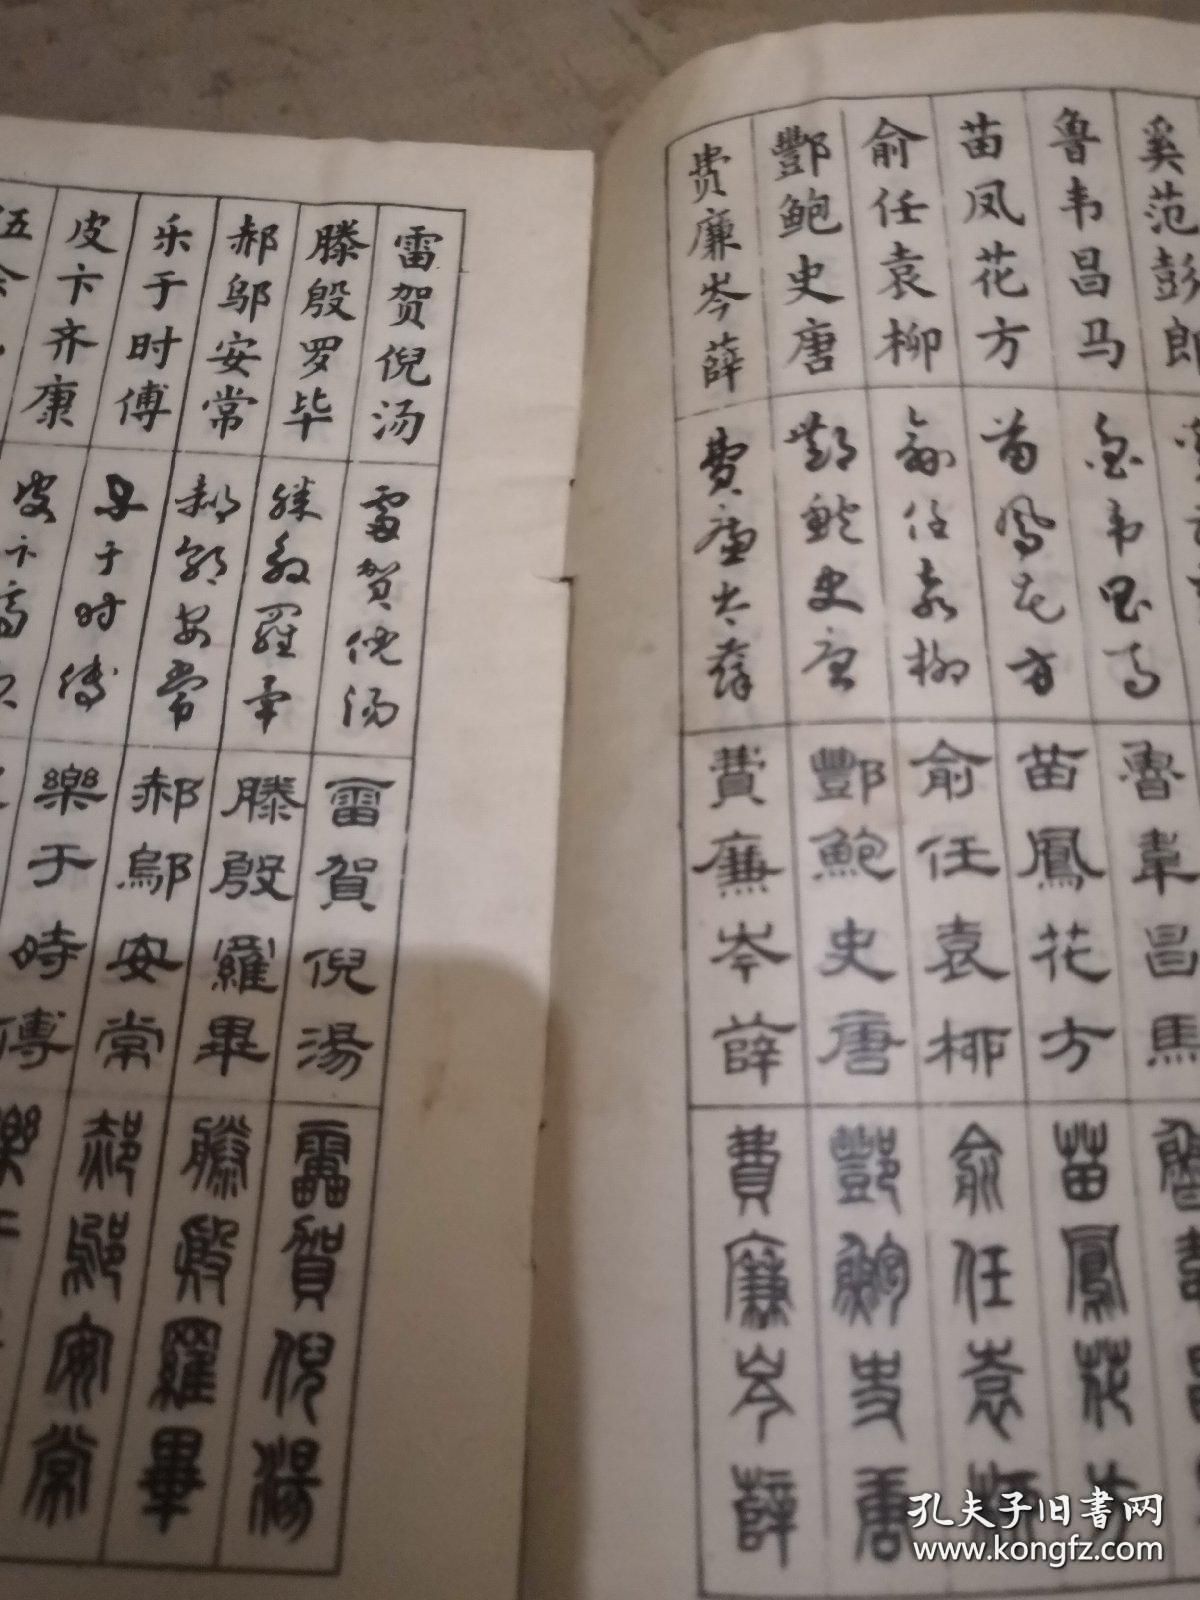 奚范彭郎
鲁韦昌马
苗凤花方
俞任袁柳
酆鲍史唐
费廉岑薛
鲁韦昌马
苗鳳花方
俞任袁柳
酆鲍史唐
費廉岑薛
魯韋昌馬
苗鳳花方
俞任袁柳
酆鮑史唐
費廉岑薛
苗鳳花方
俞任袁柳
酆鮑史唐
費廉岑薛
雷贺倪汤
滕殷罗毕
郝邬安常
乐于时傅
皮卞齐康
伍
雷賀倪湯
滕殷羅畢
郝鄔安常
乐于时傅
皮卞齊
雷賀倪湯
滕殷羅畢
郝鄔安常
樂于時傅
靁賀倪湯
滕殷羅畢
郝鄔安常
樂
孔夫子旧书网
www.kongfz.com